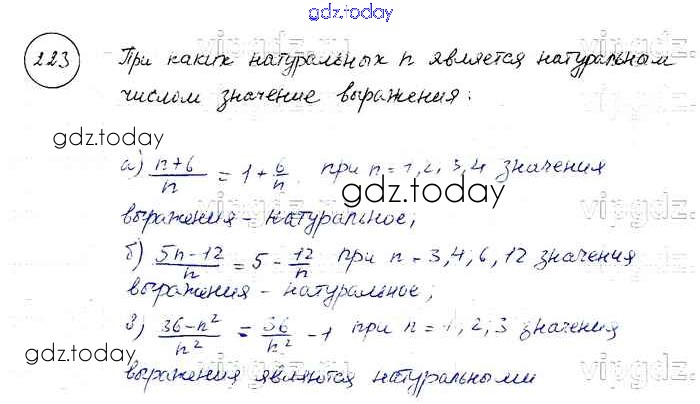 gdz.today
223 При каких натуральных n является натуральным
числом значение выражения:
gdz.today
а) (n+6)/n = 1 + 6/n. при n = 1, 2, 3, 4 значения
gdz.today
выражения - натуральное;
б) (5n-12)/n = 5 - 12/n при n = 3, 4, 6, 12 значения
выражения - натуральное;
з) (36-n²)/n² = 36/n² - 1 при n = 1, 2, 3 значения
gdz.today
выражения являются натуральными